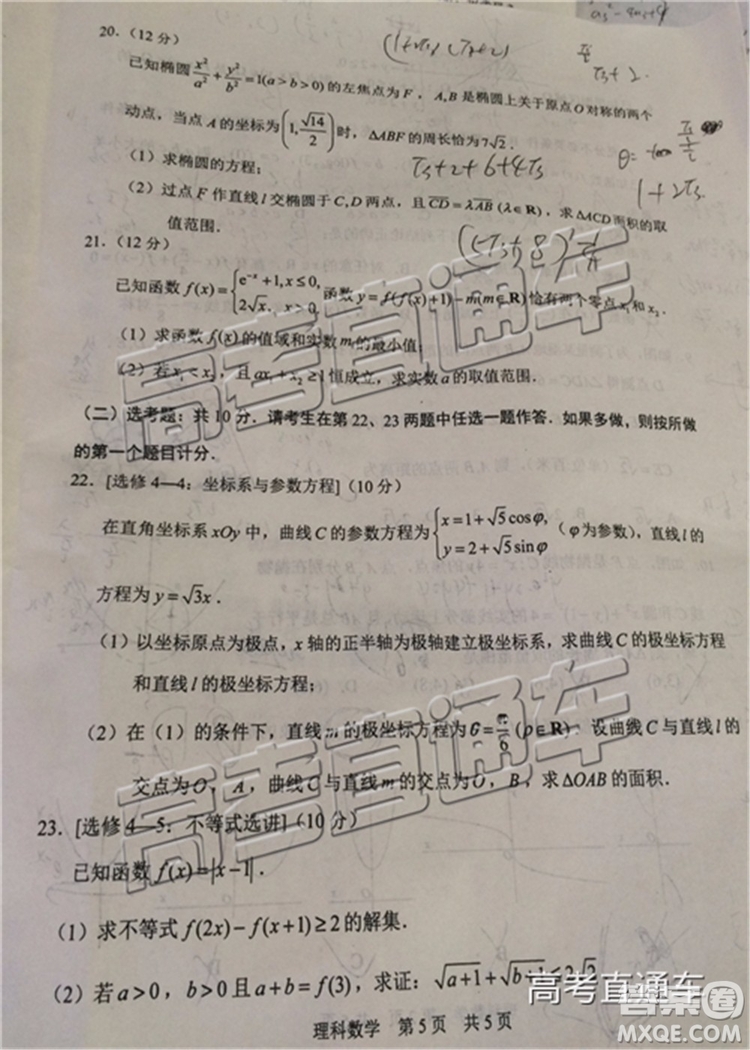 as²-4as+9
20.（12分）
已知椭圆x²/a²+y²/b²=1(a>b>0)的左焦点为F，A,B是椭圆上关于原点O对称的两个
动点，当点A的坐标为(1,√14/2)时，△ABF的周长恰为7√2．
（1）求椭圆的方程；
（2）过点F作直线l交椭圆于C,D两点，且CD=λAB(λ∈R)，求△ACD面积的取
值范围．
21.（12分）
已知函数f(x)={e⁻ˣ+1,x≤0, 2√x, x>0,函数y=f(f(x)+1)-m(m∈R)恰有两个零点x₁和x₂．
（1）求函数f(x)的值域和实数m的最小值；
（2）若x₁<x₂，且ax₁+x₂≥1恒成立，求实数a的取值范围．
（二）选考题：共10分．请考生在第22、23两题中任选一题作答．如果多做，则按所做
的第一个题目计分．
22．[选修4—4：坐标系与参数方程]（10分）
在直角坐标系xOy中，曲线C的参数方程为{x=1+√5cosφ, y=2+√5sinφ（φ为参数），直线l的
方程为y=√3x．
（1）以坐标原点为极点，x轴的正半轴为极轴建立极坐标系，求曲线C的极坐标方程
和直线l的极坐标方程；
（2）在（1）的条件下，直线m的极坐标方程为θ=π/6(ρ∈R)．设曲线C与直线l的
交点为O，A，曲线C与直线m的交点为O，B，求△OAB的面积．
23．[选修4—5：不等式选讲]（10分）
已知函数f(x)=|x-1|．
（1）求不等式f(2x)-f(x+1)≥2的解集．
（2）若a>0，b>0且a+b=f(3)，求证：√a+1+√b+1≤2√2
理科数学 第5页 共5页
高考直通车
高考直通车
高考直通车
答案圈
MXQE.COM